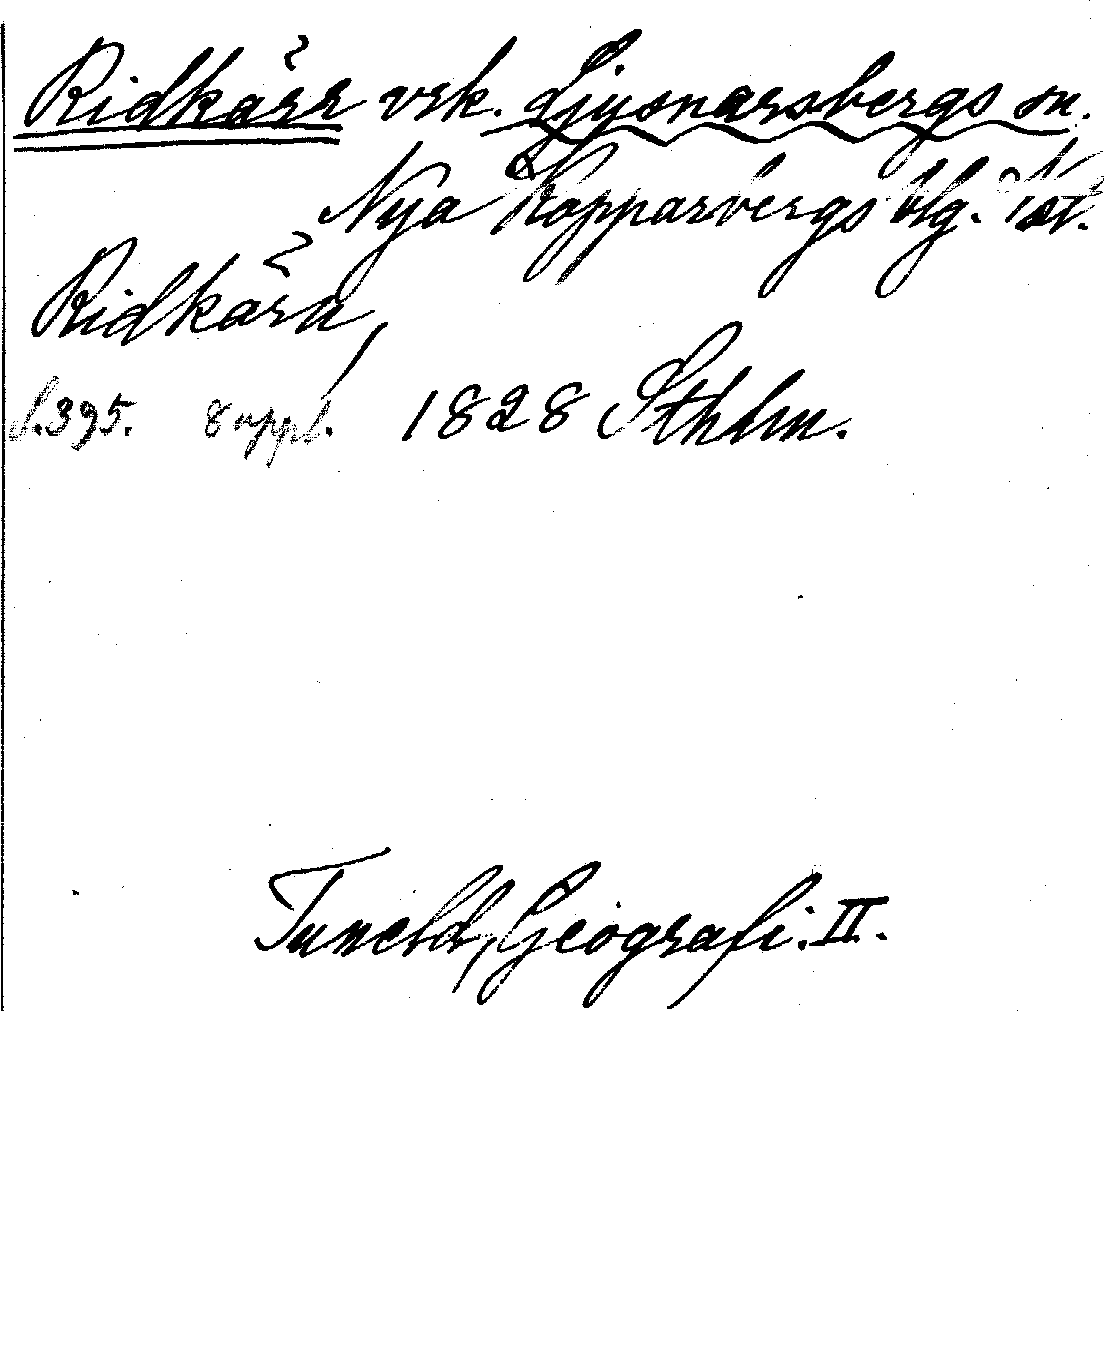 Ridkärr vrk. Ljusnarsbergs sn.
Nya Kopparbergs blg.
Ridkärn,
s.395. 8 uppl. 1828 Sthlm.
Tuneld, Geografi. II.